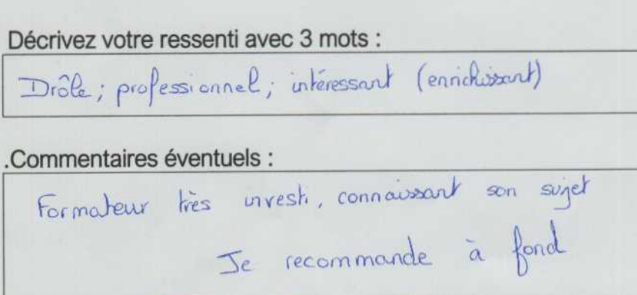 Décrivez votre ressenti avec 3 mots :
Drôle; professionnel; intéressant (enrichissant)
.Commentaires éventuels :
Formateur très investi, connaissant son sujet
Je recommande à fond